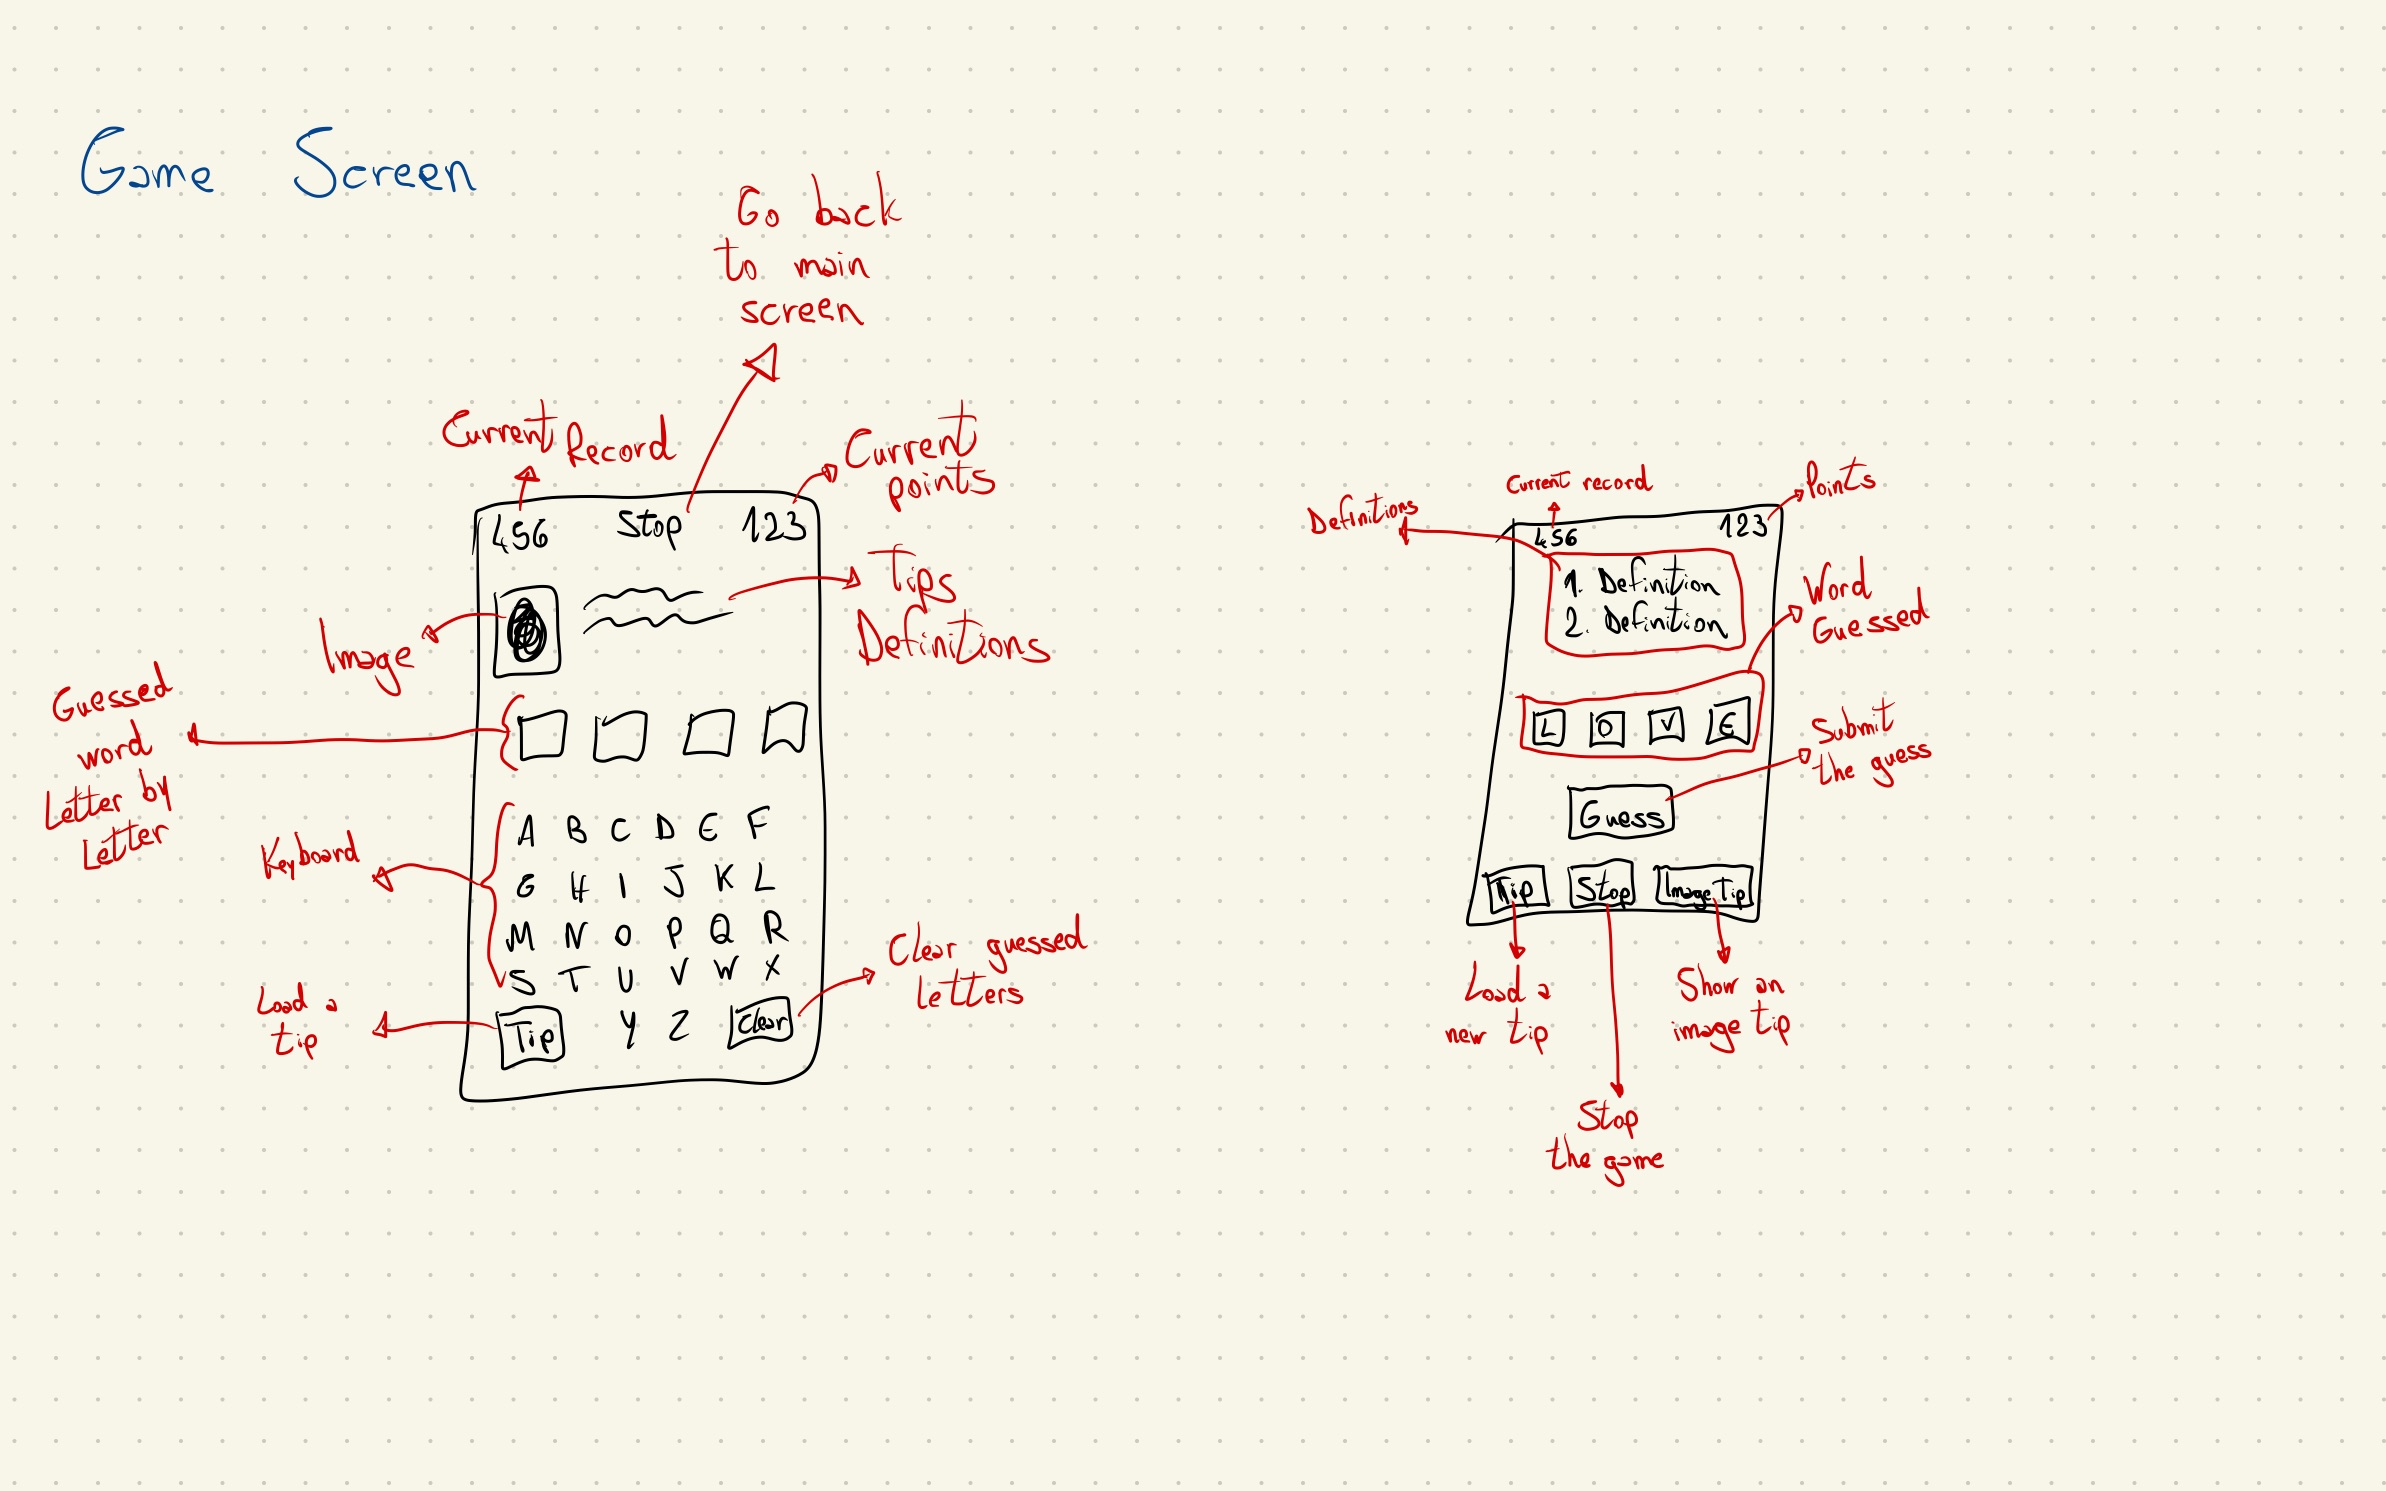 Game Screen
Go back
to main
screen
Current Record
Current
points
456 Stop 123
Tips
Definitions
Image
Guessed
word
Letter by
Letter
Keyboard
A B C D E F
G H I J K L
M N O P Q R
S T U V W X
Tip Y Z Clear
Load a
tip
Clear guessed
letters
Current record
Points
Definitions
456 123
1. Definition
2. Definition
Word
Guessed
L O V E
Submit
the guess
Guess
Tip Stop Image Tip
Load a
new tip
Stop
the game
Show an
image tip